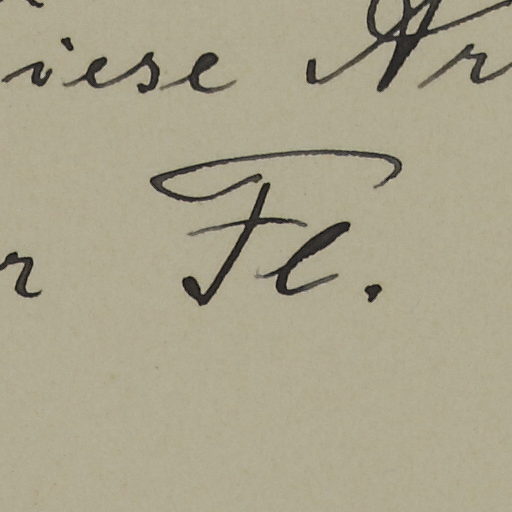 iese Ar
r Fl.